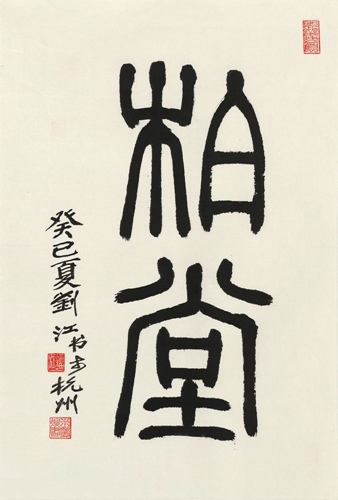 柏堂
癸巳夏劉江书于杭州